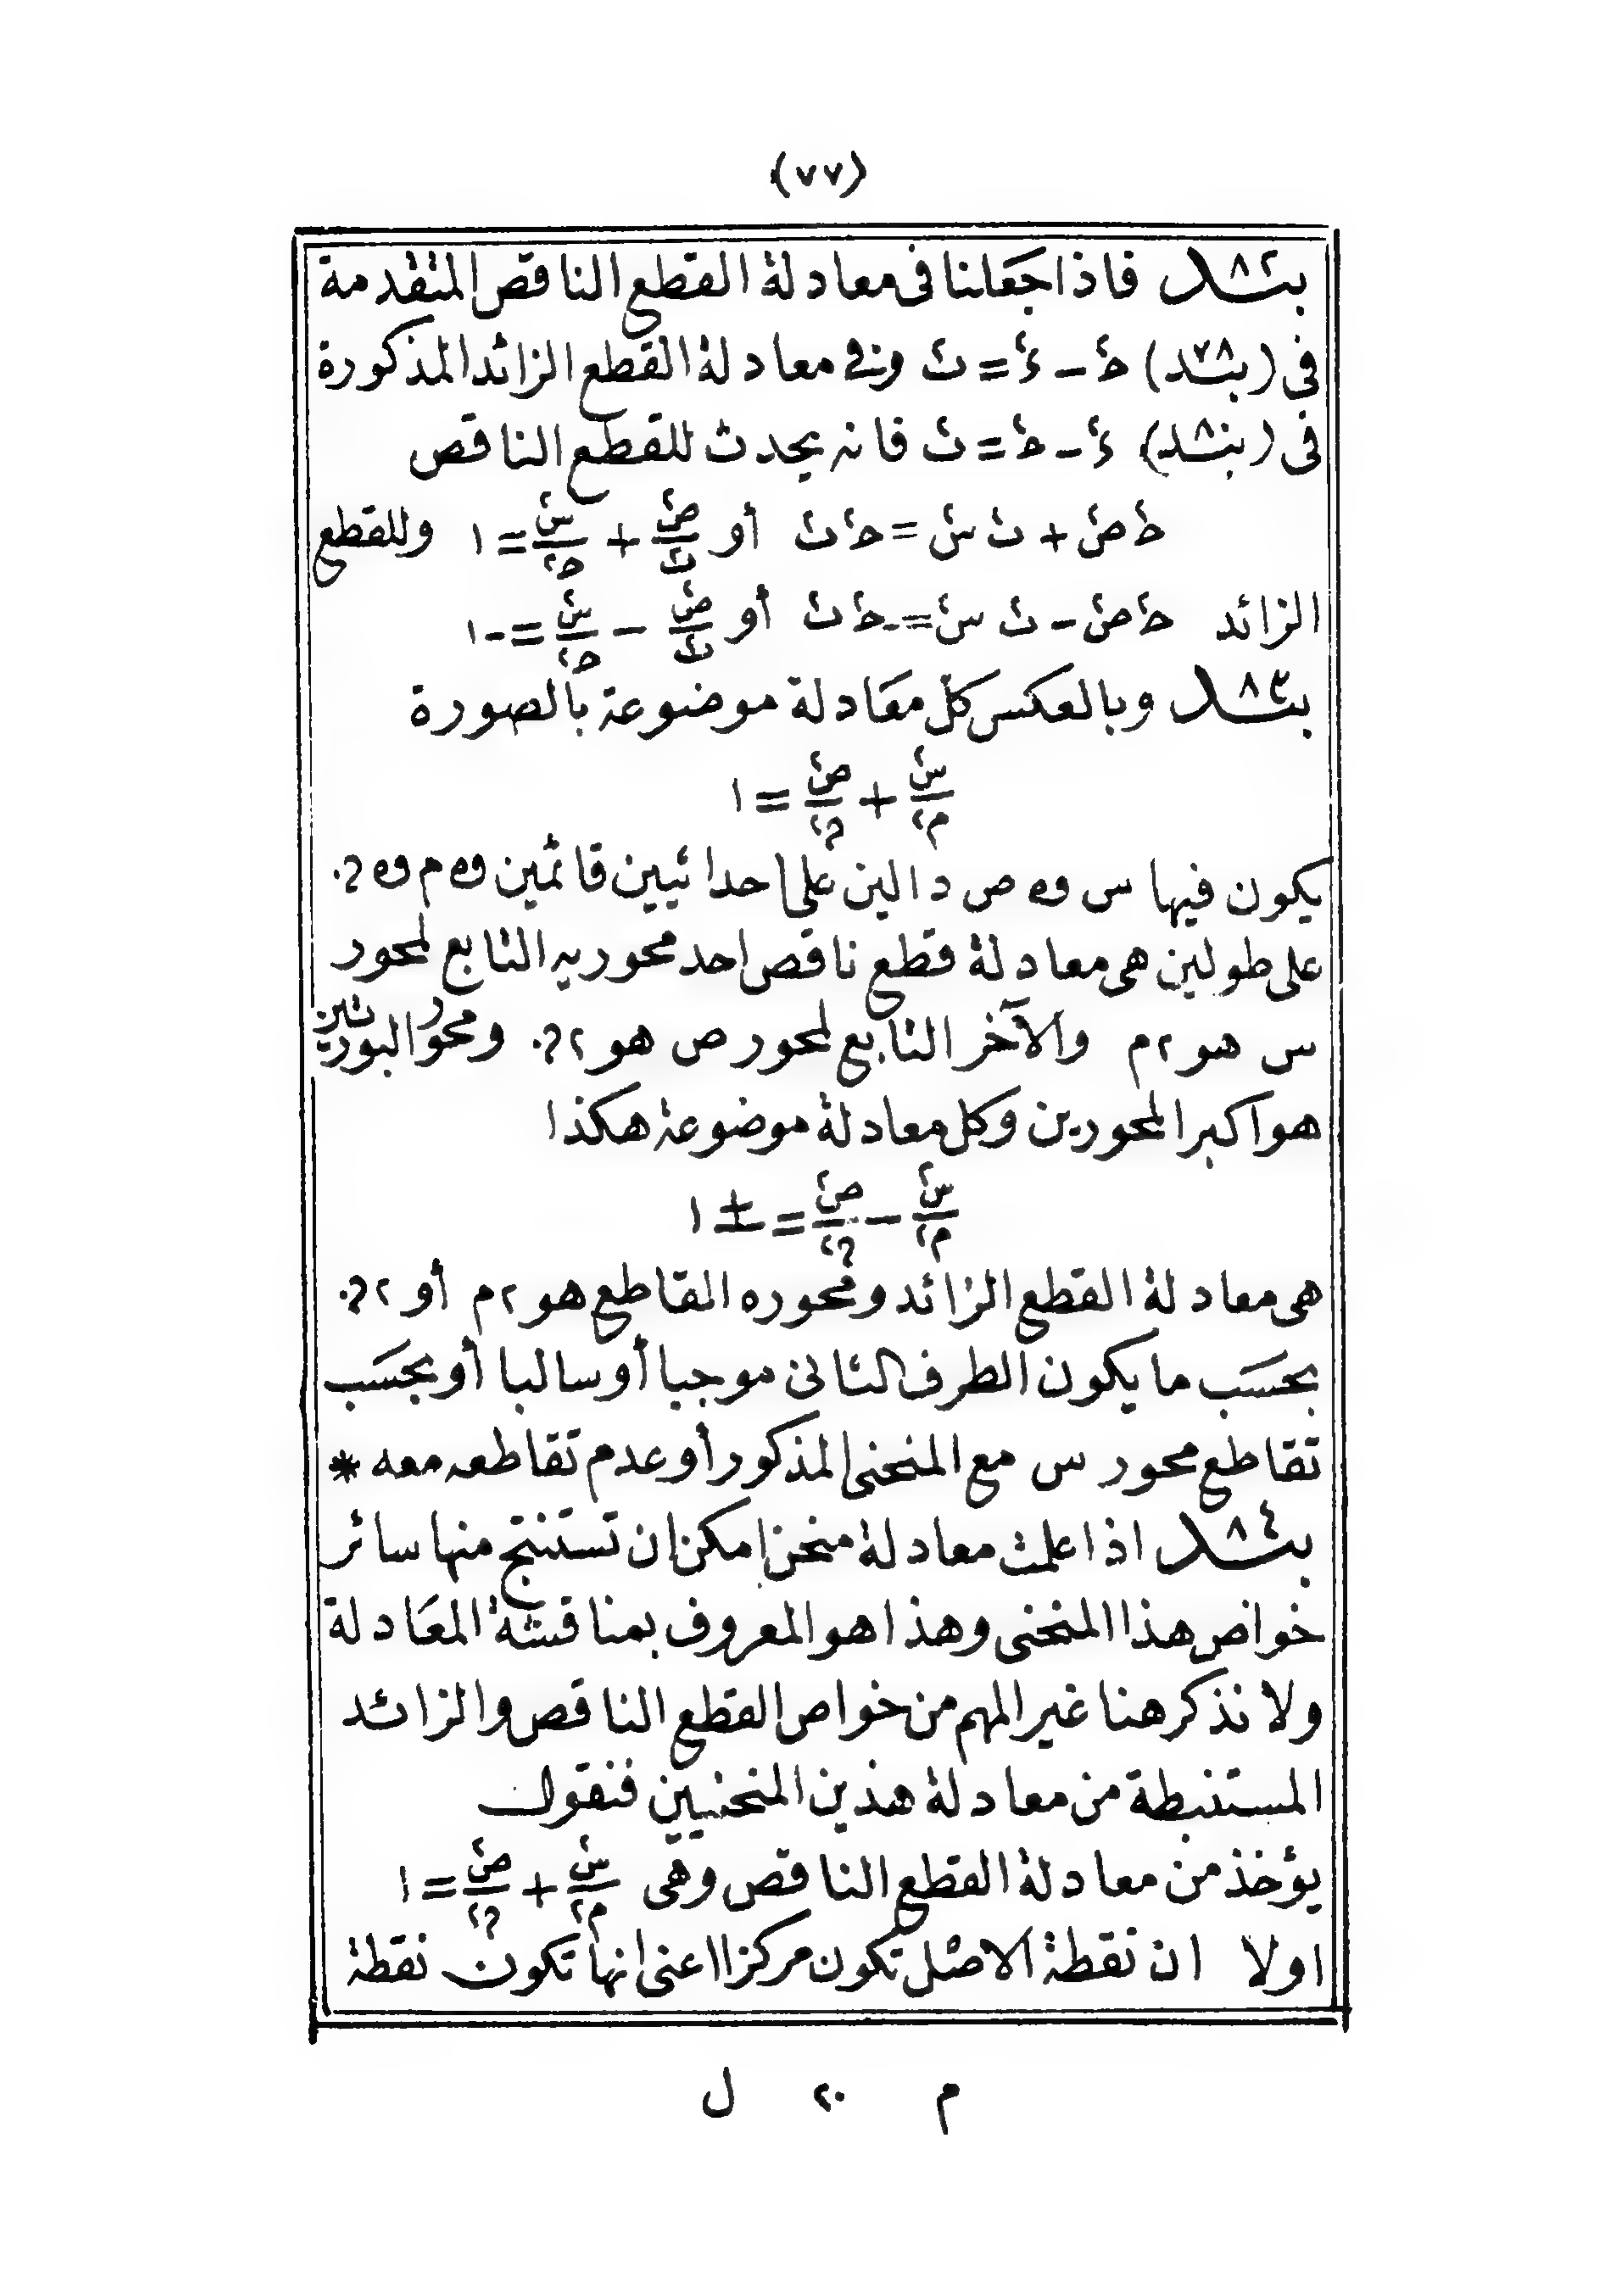 (٧٧)
بند ٨٢ فاذا جعلنا فى معادلة القطع الناقص المتقدمة
فى (بند ٧٨) حَ٢ - ءَ٢ = ث٢ وفى معادلة القطع الزائد المذكورة
فى (بند ٨) ء٢ - ح٢ = ث٢ فانه يحدث للقطع الناقص
ح٢ ص٢ + ث٢ س٢ = ح٢ ث٢ أو ص٢/ث٢ + س٢/ح٢ = ١ وللقطع
الزائد ح٢ ص٢ - ث٢ س٢ = -ح٢ ث٢ أو ص٢/ث٢ - س٢/ح٢ = -١
بند ٨٣ وبالعكس كل معادلة موضوعة بالصورة
س٢/م٢ + ص٢/?٢ = ١
يكون فيها س و ص دالين على احداثيين قائمين و م و ?.
على طولين هى معادلة قطع ناقص احد محوريه التابع لمحور
س هو ٢م والآخر التابع لمحور ص هو ٢?. ومحور البورتين
هو اكبر المحورين وكل معادلة موضوعة هكذا
س٢/م٢ - ص٢/?٢ = ± ١
هى معادلة القطع الزائد ومحوره القاطع هو ٢م أو ٢?.
بحسب ما يكون الطرف الثانى موجبا أو سالبا أو بحسب
تقاطع محور س مع المنحنى المذكور أو عدم تقاطعه معه *
بند ٨٤ اذا علمت معادلة منحن امكن ان تستنتج منها سائر
خواص هذا المنحنى وهذا هو المعروف بمناقشة المعادلة
ولا نذكر هنا غير المهم من خواص القطع الناقص والزائد
المستنبطة من معادلة هذين المنحنيين فنقول
يؤخذ من معادلة القطع الناقص وهى س٢/م٢ + ص٢/?٢ = ١
اولا ان نقطة الاصل تكون مركزا اعنى انها تكون نقطة
م ٢٠ ل